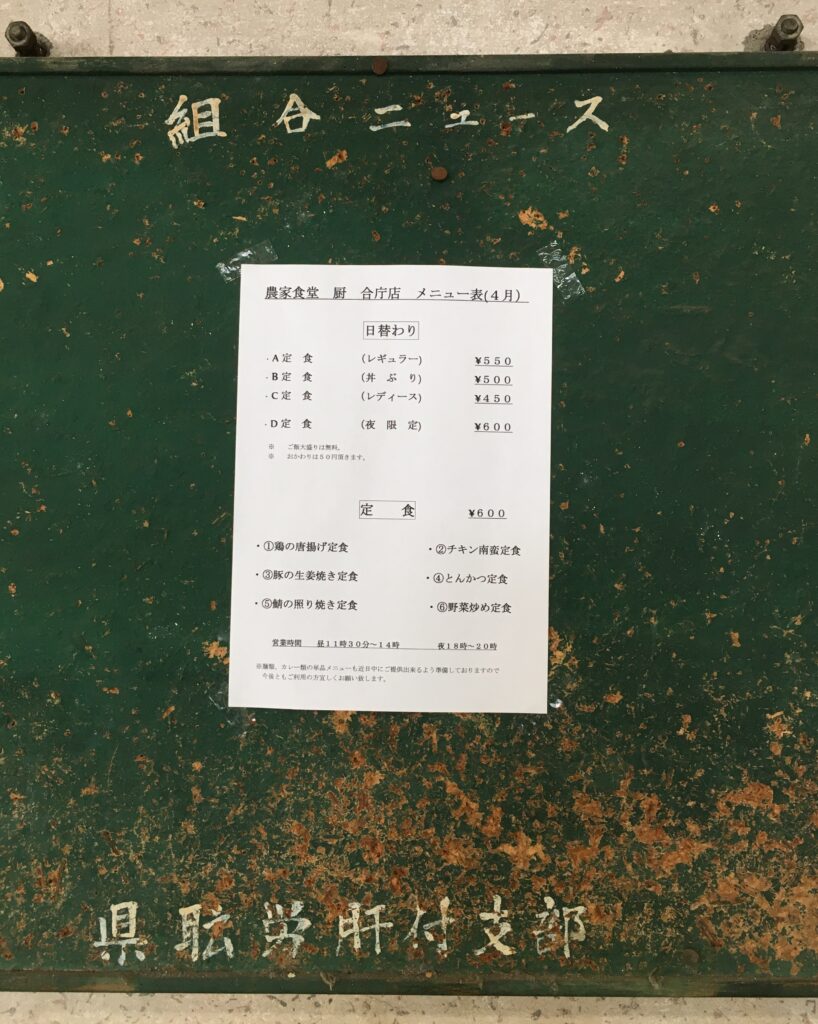 組合ニュース
農家食堂　厨　合庁店　メニュー表(４月)
日替わり
・A定　食　(レギュラー)　¥５５０
・B定　食　(丼　ぶ　り)　¥５００
・C定　食　(レディース)　¥４５０
・D定　食　(夜　限　定)　¥６００
※　ご飯大盛りは無料。
※　おかわりは５０円頂きます。
定　食　¥６００
・①鶏の唐揚げ定食　・②チキン南蛮定食
・③豚の生姜焼き定食　・④とんかつ定食
・⑤鯖の照り焼き定食　・⑥野菜炒め定食
営業時間　昼１１時３０分～１４時　夜１８時～２０時
※麺類、カレー類の単品メニューも近日中にご提供出来るよう準備しておりますので
今後ともご利用の方宜しくお願い致します。
県職労肝付支部